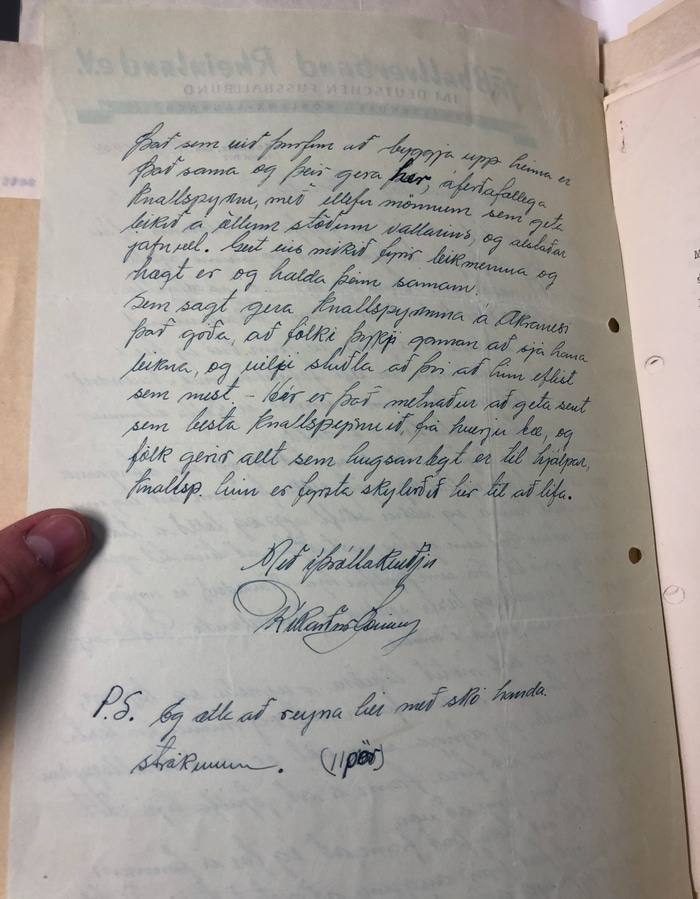 Fußballverband Rheinland e.V.
IM DEUTSCHEN FUSSBALLBUND
Það sem við þurfum að byggja upp heima er
það sama og þeir gera hér, áferðafallega
knallspyrnu, með ellefu mönnum sem geta
leikið á öllum stöðum vallarins, og alstaðar
jafnvel. Gert eins mikið fyrir leikmenna og
hægt er og halda þeim saman.
Sem sagt gera knallspyrnuna á Akranesi
það góða, að fólki þykji gaman að sjá hana
leikna, og vilji stuðla að því að hún eflist
sem mest. - Hér er það metnaður að geta sent
sem besta knallspyrnulið, frá hverju bæ, og
fólk gerir allt sem hugsanlegt er til hjálpar,
knallsp. hún er fyrsta skylirðið hér til að lifa.
Með íþróttakveðju
Ríkarður Jónsson
P.S. Ég ætla að reyna hér með skó handa
strákunum. (11 pör)